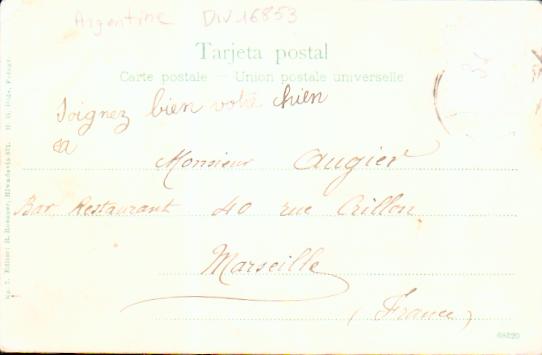 Argentine DIV16853
Tarjeta postal
Carte postale — Union postale universelle
Soignez bien votre chien
a
Monsieur Augier
Bar Restaurant 40 rue Crillon
Marseille
(France)
68820
No. 7. Editor: R. Rosauer, Rivadavia 571.